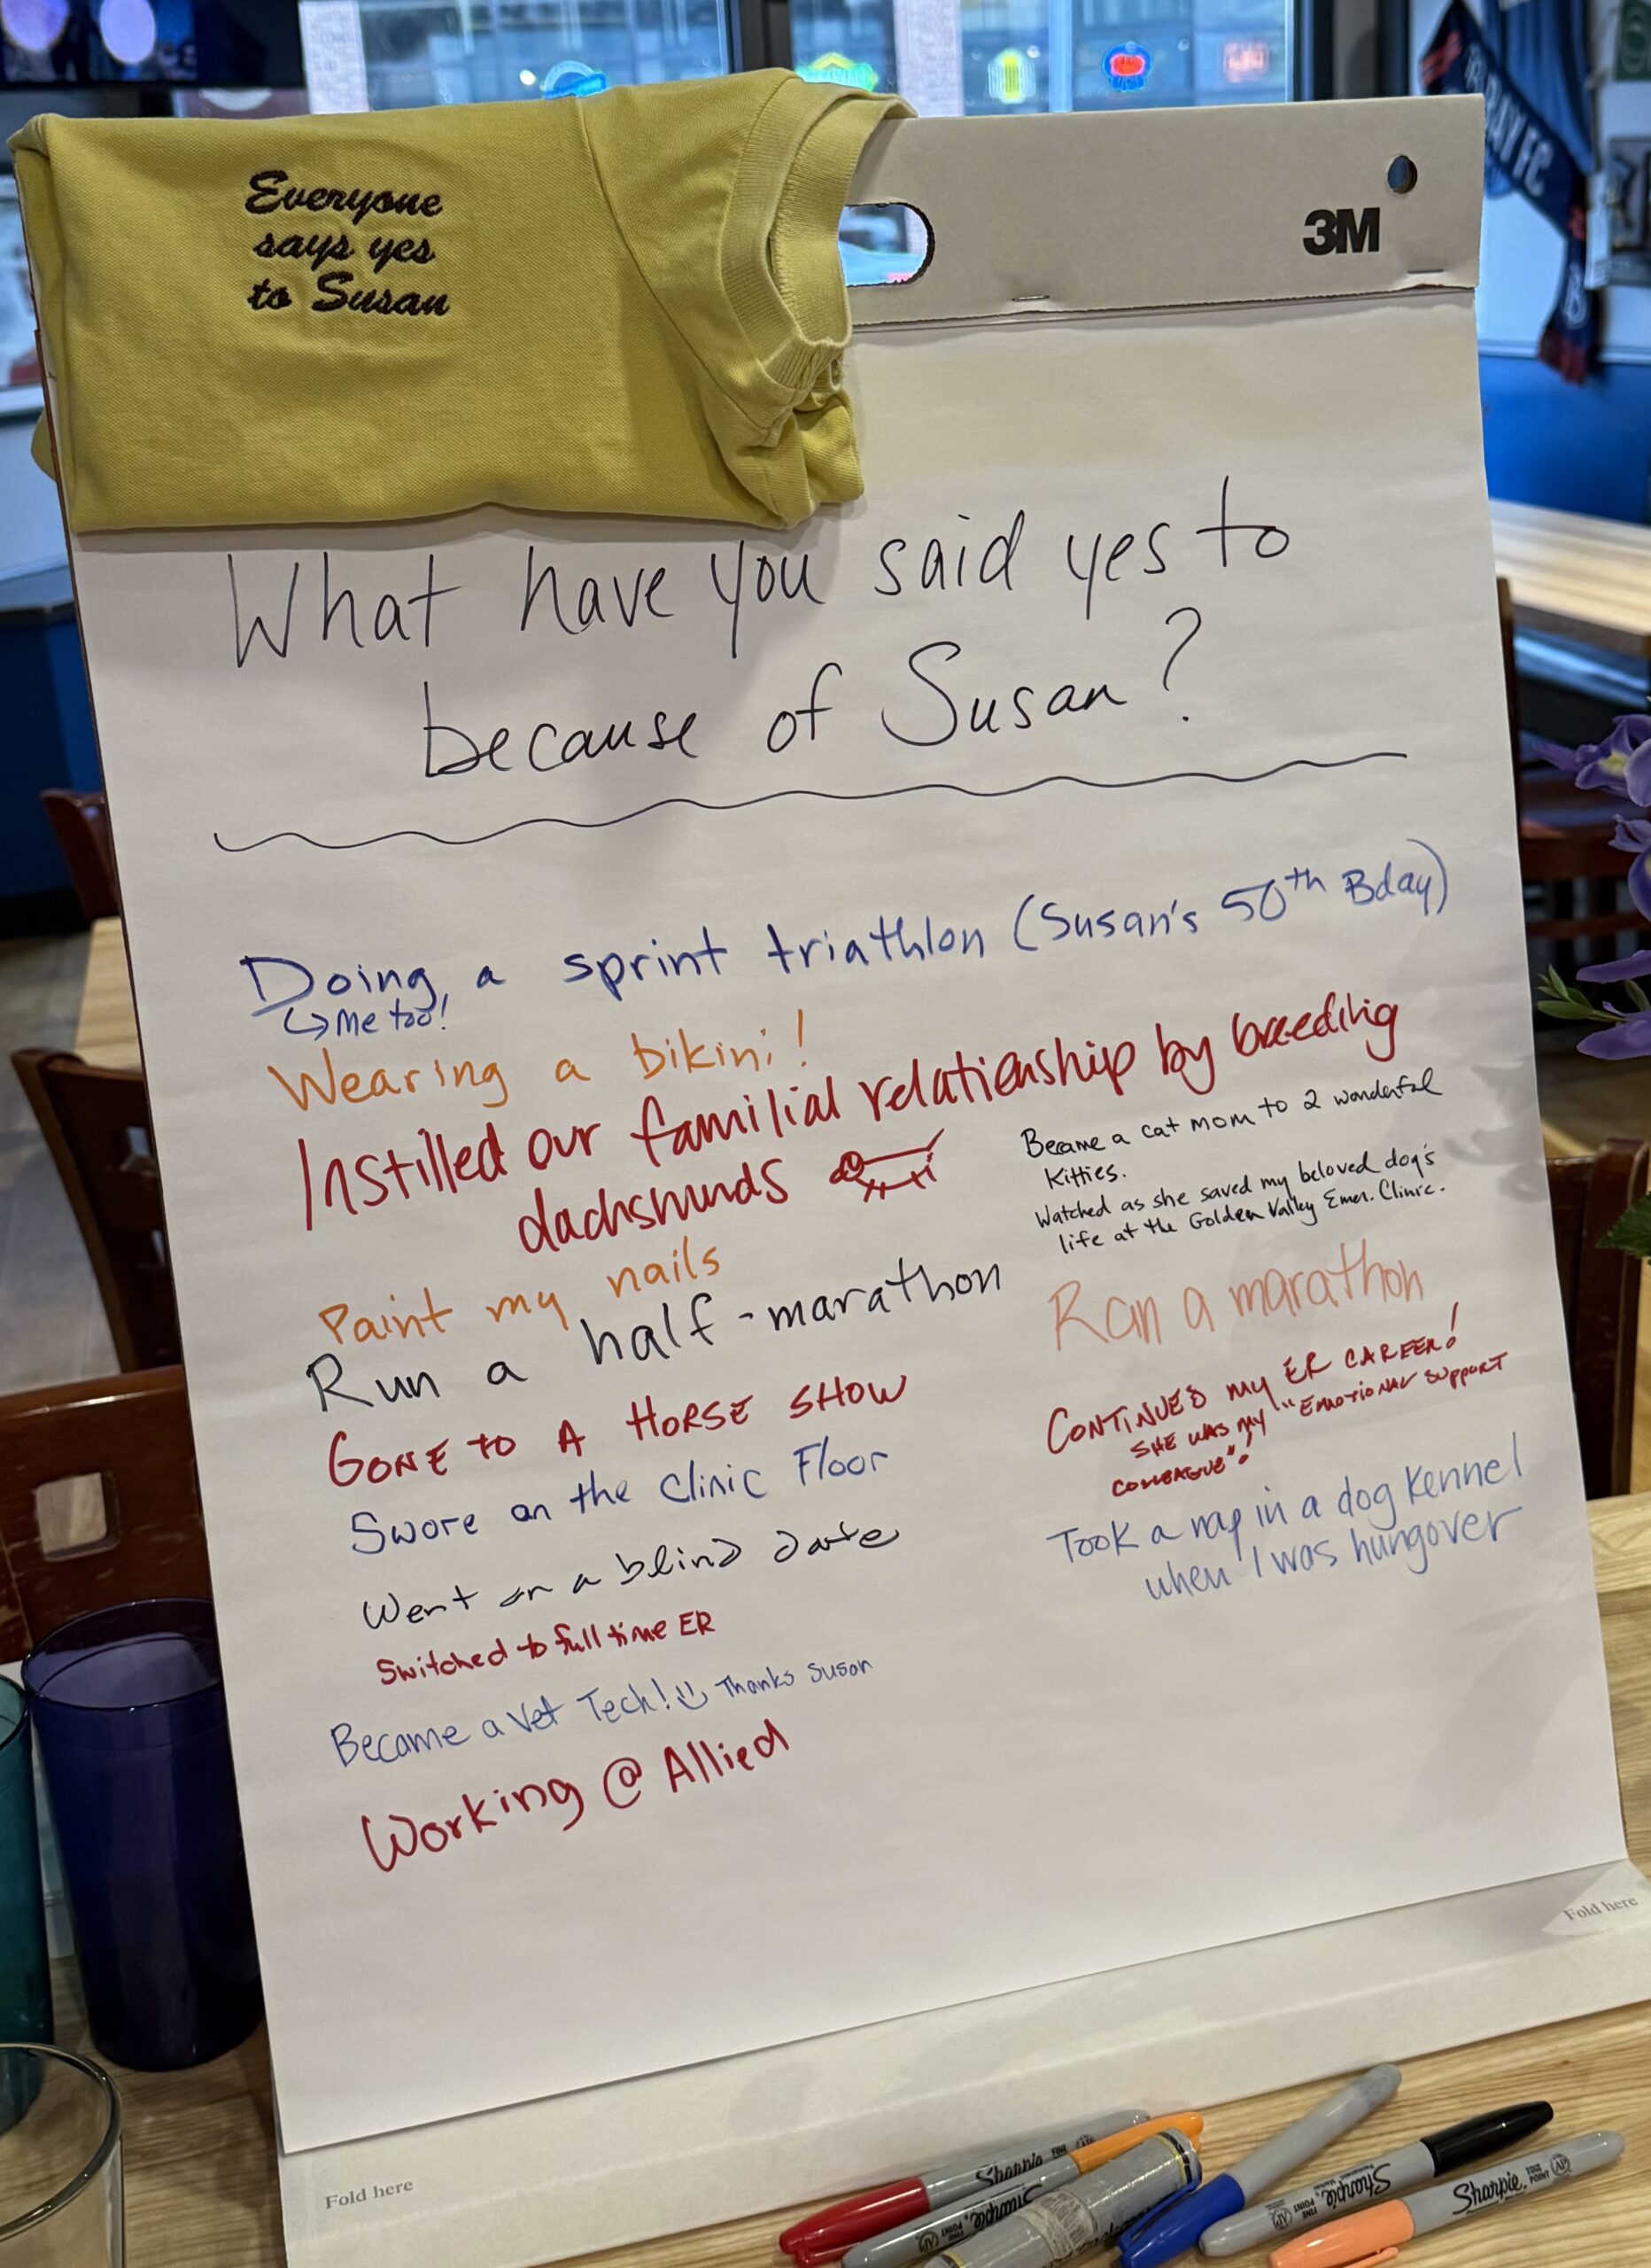 Everyone
says yes
to Susan
3M
What have you said yes to
because of Susan?
Doing a sprint triathlon (Susan's 50th Bday)
↳ Me too!
Wearing a bikini!
Instilled our familial relationship by breeding
dachshunds
Paint my nails
Run a half-marathon
GONE TO A HORSE SHOW
Swore on the Clinic Floor
Went on a blind date
Switched to full time ER
Became a Vet Tech! Thanks Susan
Working @ Allied
Became a cat mom to 2 wonderful
Kitties.
Watched as she saved my beloved dog's
life at the Golden Valley Emer. Clinic.
Ran a marathon
CONTINUED MY ER CAREER!
SHE WAS MY "EMOTIONAL SUPPORT
COLLEAGUE"!
Took a nap in a dog Kennel
when I was hungover
Fold here
Fold here
Sharpie
Sharpie
Sharpie
Sharpie
FINE POINT